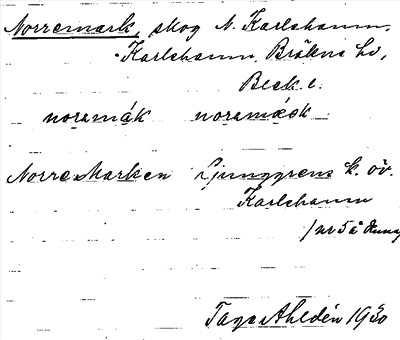 Norremark, skog N. Karlshamn,
Karlshamn, Bräkne hd,
Bleck. l.
noramárk noramárk
Norre Marken Ljunggrens k. öv.
Karlshamn
/nr 5 å denna
Tage Ahldén 1930